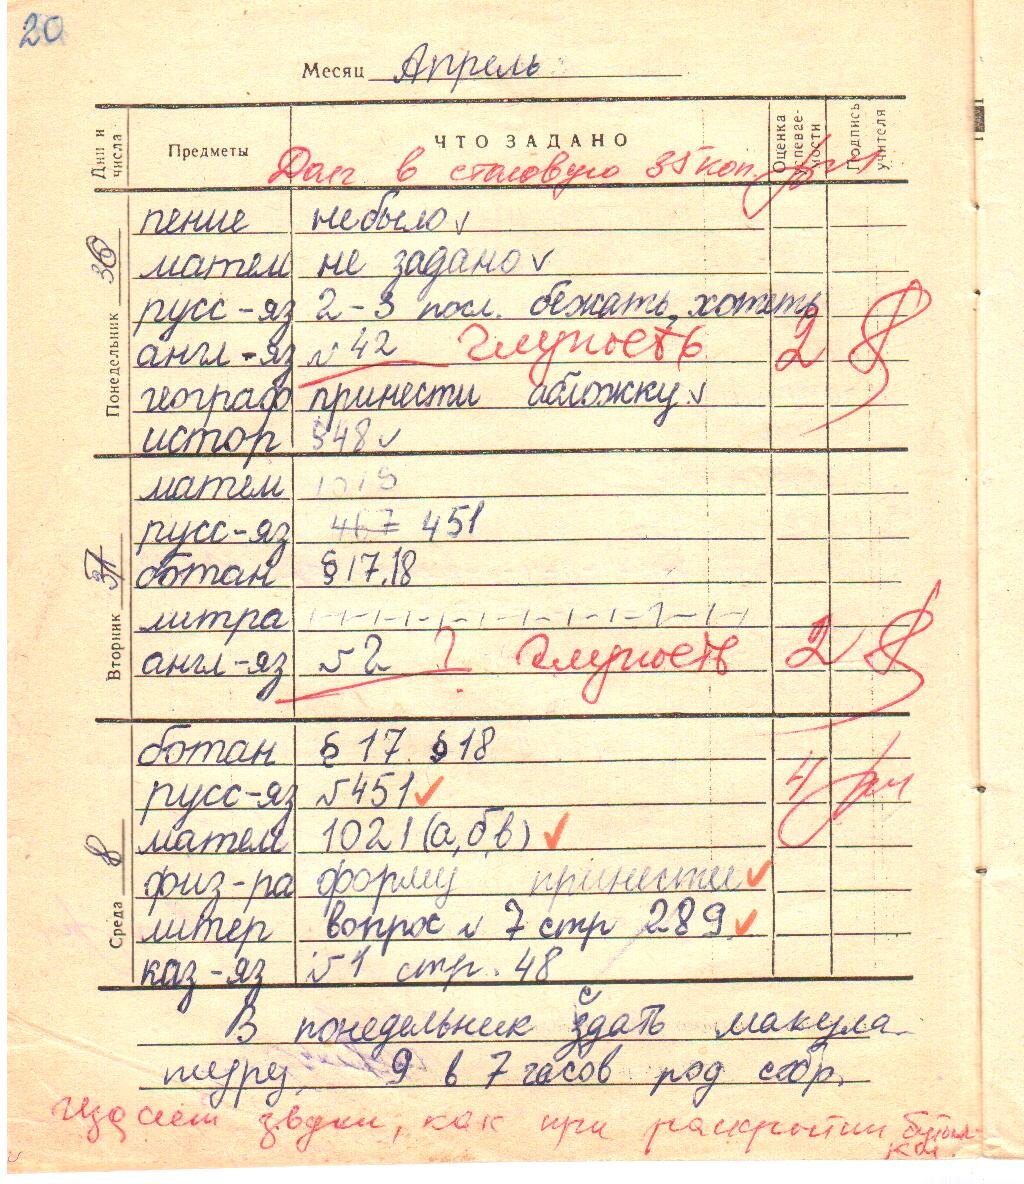 20
Месяц Апрель
Дни и числа Предметы ЧТО ЗАДАНО Оценка успеваемости Подпись учителя
Долг в столовую 35 коп.
Понедельник
пение небыло
матем не задано
русс-яз 2-3 посл. бежать, хотеть
англ-яз № 42 Глупость 2
географ принести абложку
истор §48
Вторник
матем 1019
русс-яз 467 451
ботан §17,18
литра
англ-яз №2 ? Глупость 2
Среда 8
ботан § 17. §18
русс-яз №451 4
матем 1021 (а,б,в)
физ-ра форму принести
литер вопрос № 7 стр 289
каз-яз №1 стр. 48
В понедельник сдать макула-
туру, 9 в 7 часов род собр.
Издает звуки, как при раскрытии бутыл-
ки.